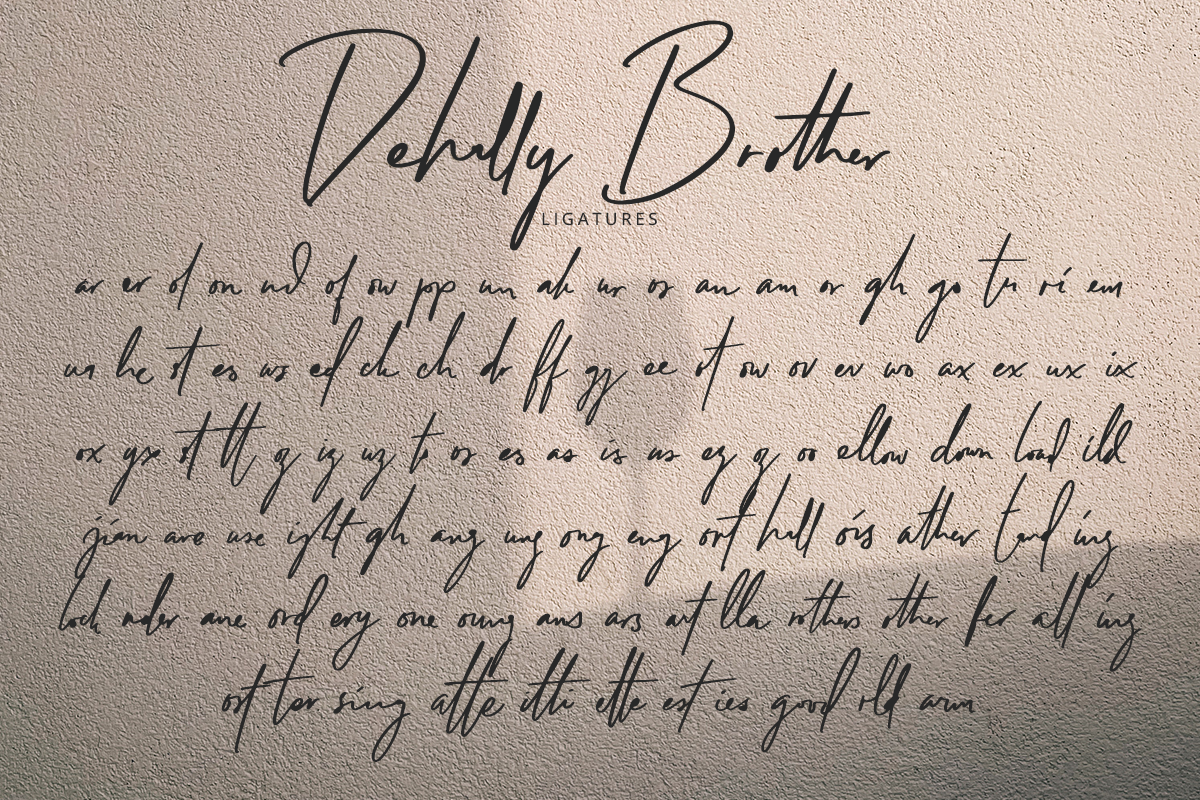 Dehally Brother
LIGATURES
ar er of on nd of ow pp un ah ur os an am or gh go tu ri em
un he ot es ws ed ck ch dr ff gy ee ot ow ov ev wo ax ex ux ix
ox yx ot tt iz uz to os es as is us ez oo ellow down load ild
jian are use ight gh ang ung ong eng ont hall ois ather tand ing
lock nder ane ord ery one oung ans ars art lla rothers other fer all ing
ost ter sing atte itti ette est ies good rld arm